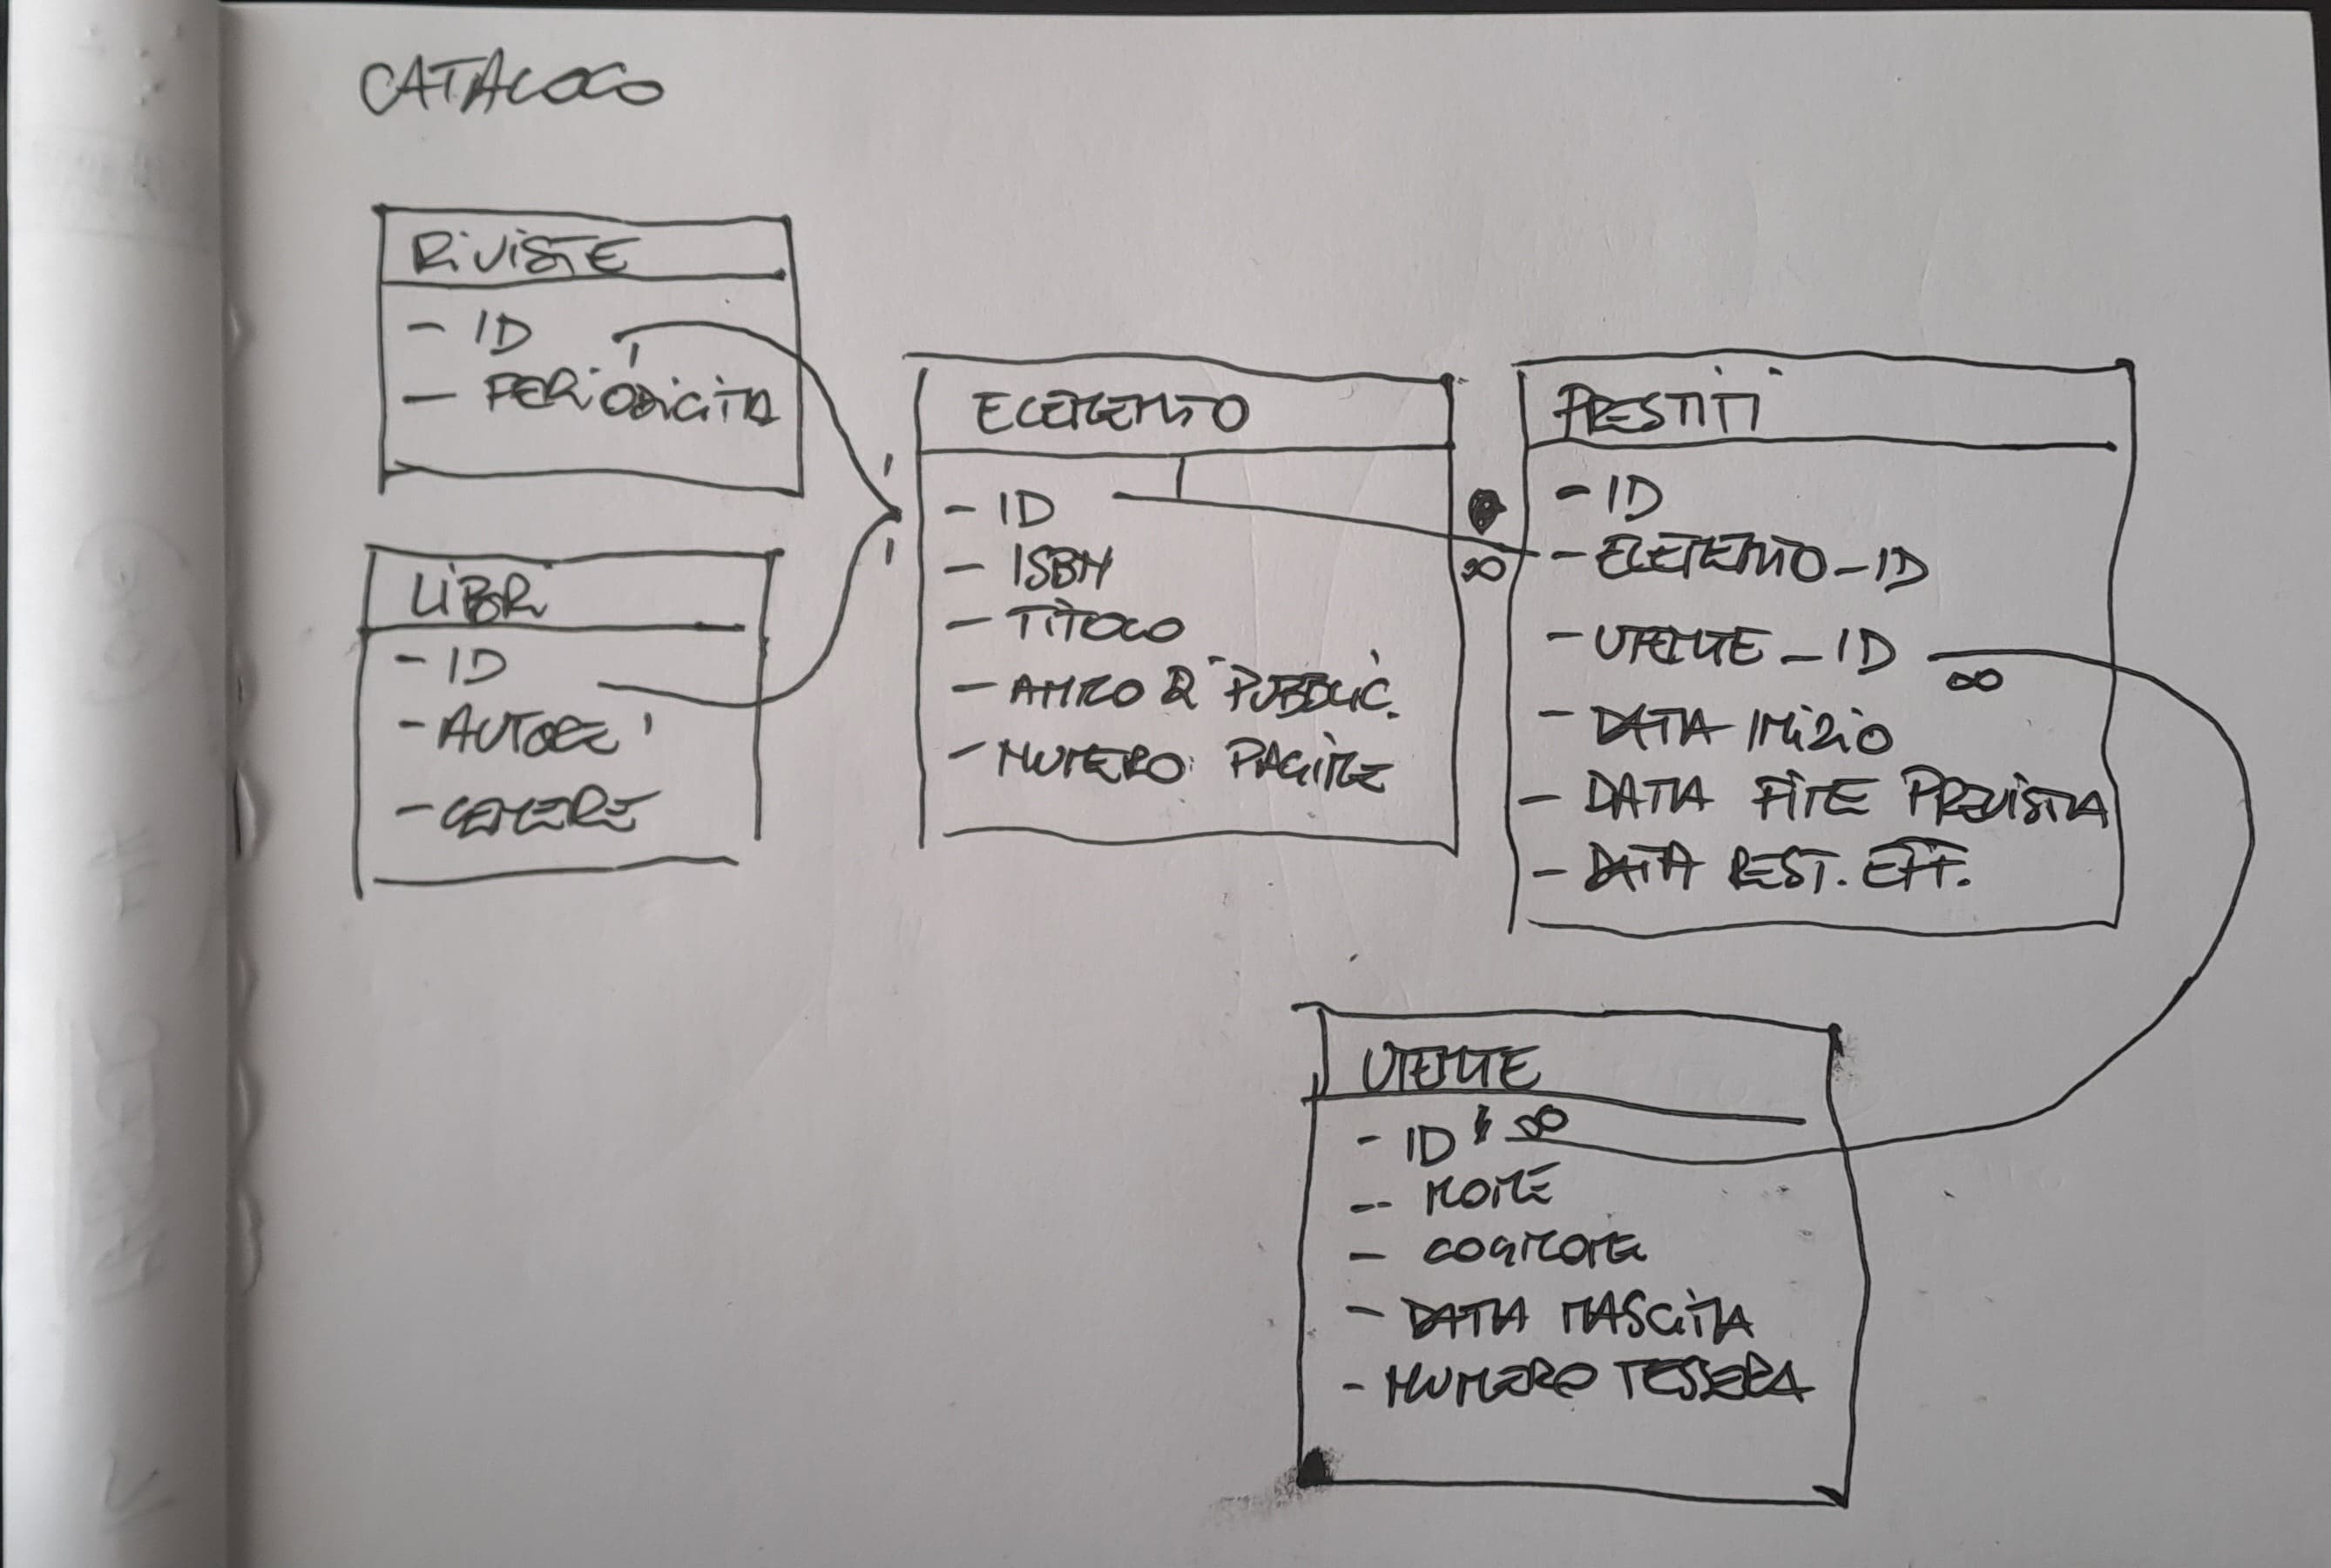 CATALOGO
RIVISTE
- ID
1
- PERIODICITA
LIBRI
- ID
- AUTORE
1
- GENERE
1
1
ELEMENTO
1
- ID
- ISBN
- TITOLO
- ANNO DI PUBBLIC.
- NUMERO PAGINE
∞
PRESTITI
- ID
- ELEMENTO_ID
- UTENTE_ID
∞
- DATA INIZIO
- DATA FINE PREVISTA
- DATA REST. EFF.
UTENTE
- ID ∞
- NOME
- COGNOME
- DATA NASCITA
- NUMERO TESSERA